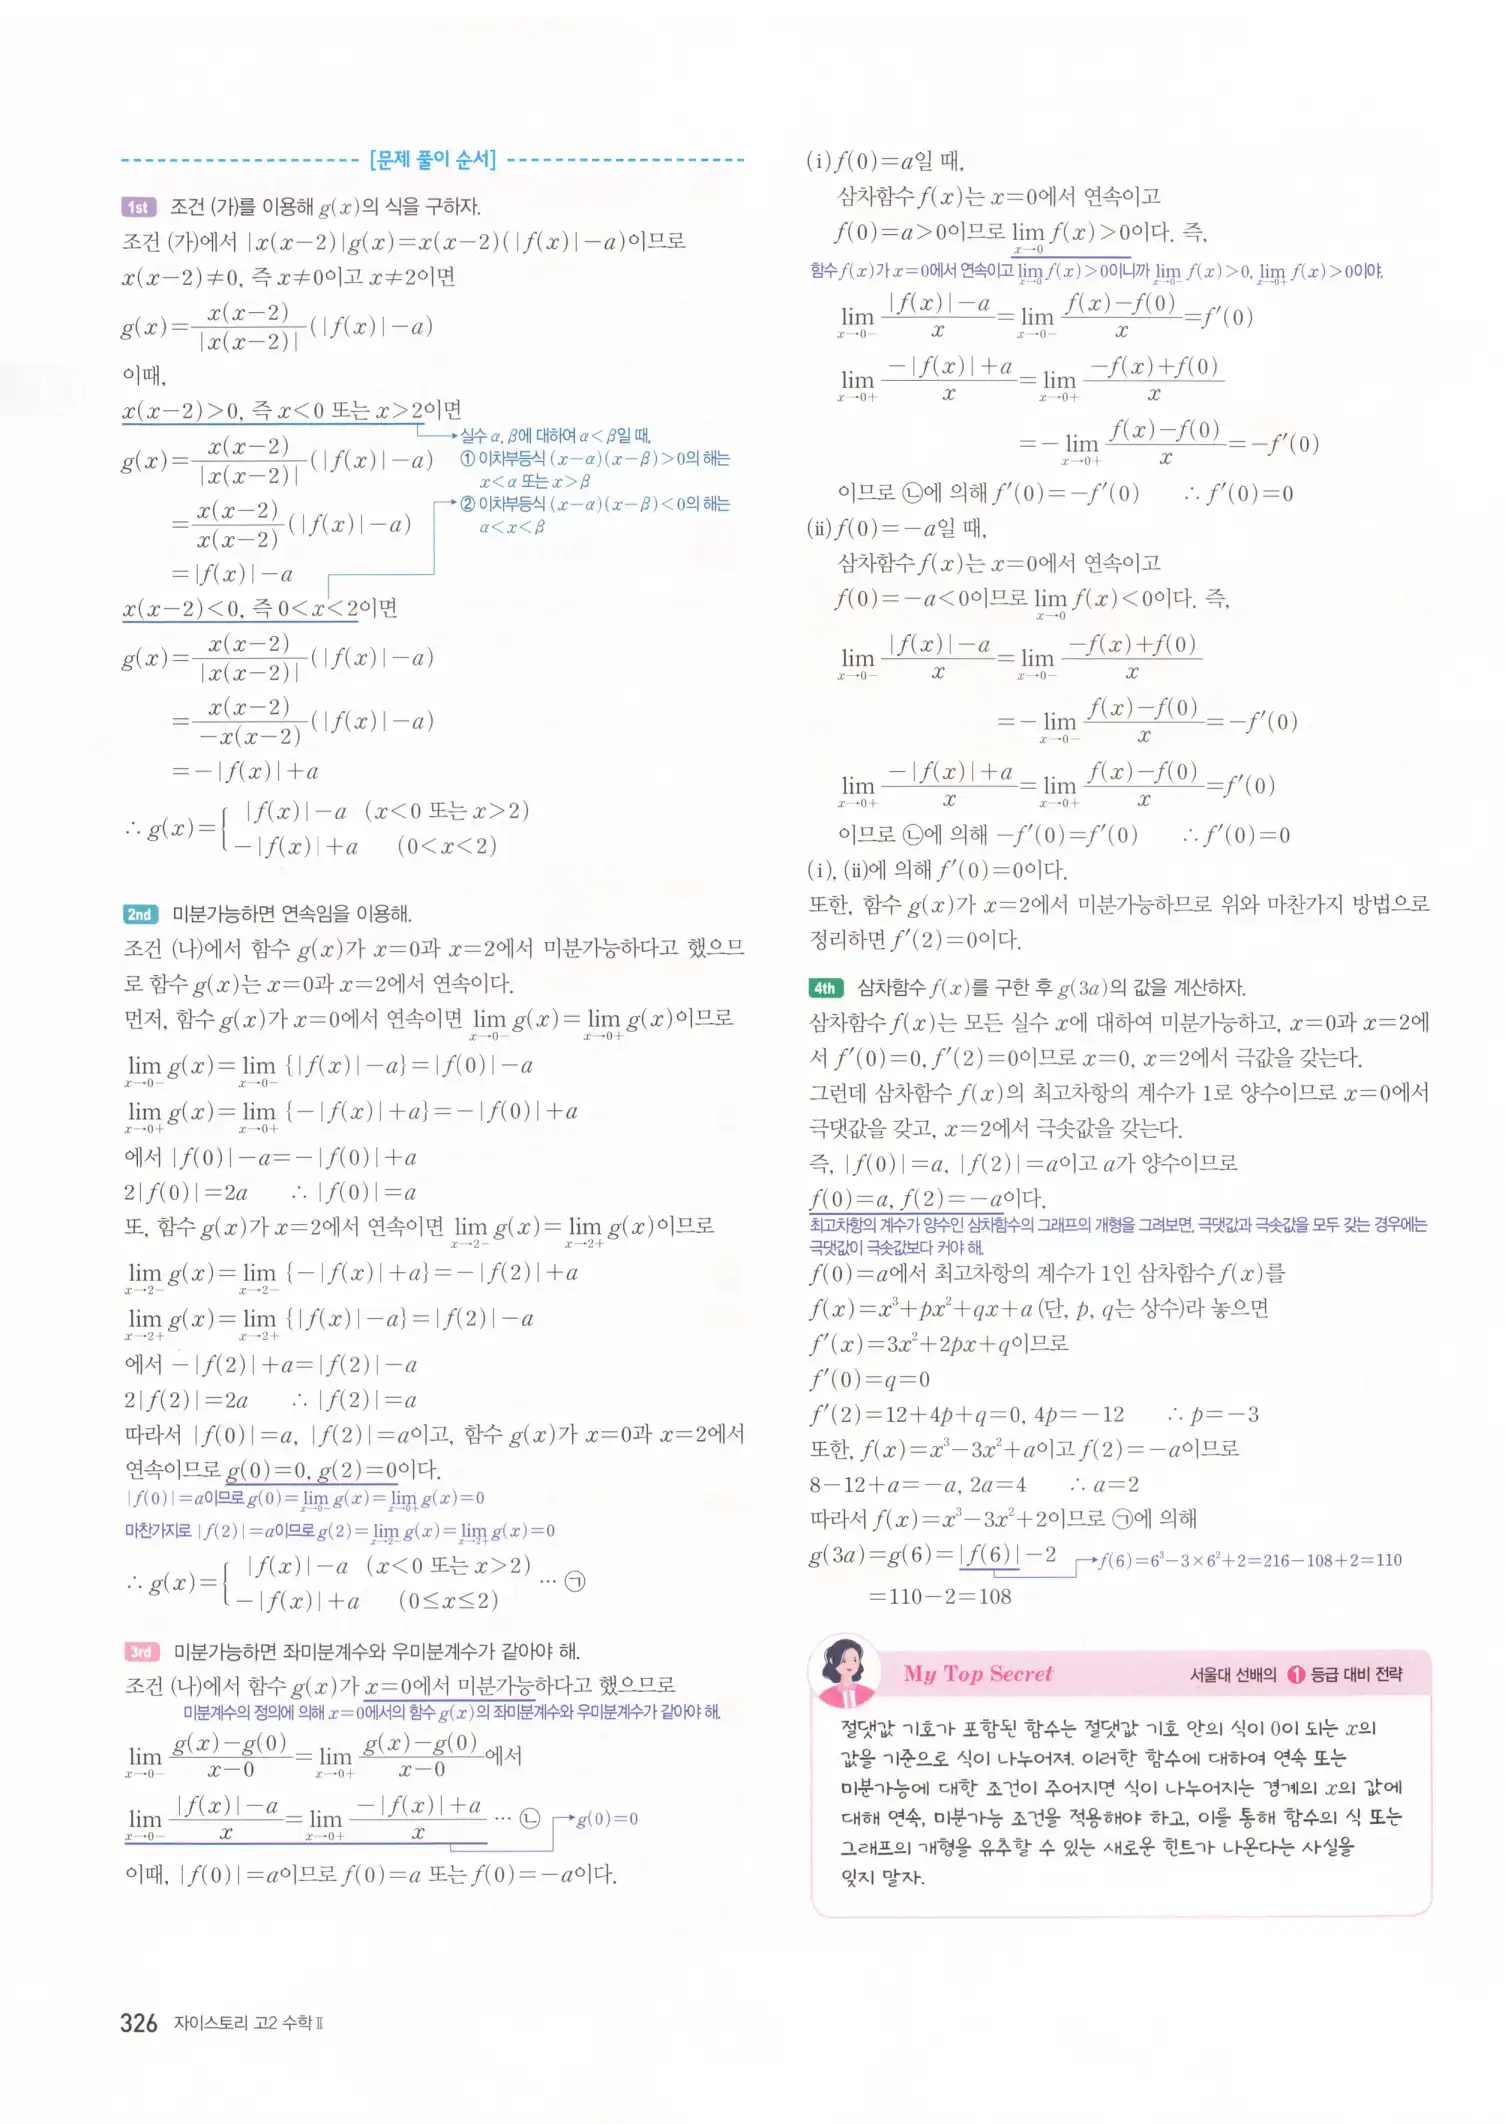 [문제 풀이 순서]
1st 조건 (가)를 이용해 g(x)의 식을 구하자.
조건 (가)에서 |x(x-2)|g(x)=x(x-2)(|f(x)|-a)이므로
x(x-2)≠0, 즉 x≠0이고 x≠2이면
g(x)=x(x-2)/|x(x-2)|(|f(x)|-a)
이때,
x(x-2)>0, 즉 x<0 또는 x>2이면
→실수 α, β에 대하여 α<β일 때,
① 이차부등식 (x-α)(x-β)>0의 해는
x<α 또는 x>β
② 이차부등식 (x-α)(x-β)<0의 해는
α<x<β
g(x)=x(x-2)/|x(x-2)|(|f(x)|-a)
=x(x-2)/x(x-2)(|f(x)|-a)
=|f(x)|-a
x(x-2)<0, 즉 0<x<2이면
g(x)=x(x-2)/|x(x-2)|(|f(x)|-a)
=x(x-2)/-x(x-2)(|f(x)|-a)
=-|f(x)|+a
∴ g(x)={ |f(x)|-a (x<0 또는 x>2)
-|f(x)|+a (0<x<2)
2nd 미분가능하면 연속임을 이용해.
조건 (나)에서 함수 g(x)가 x=0과 x=2에서 미분가능하다고 했으므
로 함수 g(x)는 x=0과 x=2에서 연속이다.
먼저, 함수 g(x)가 x=0에서 연속이면 lim x→0- g(x)=lim x→0+ g(x)이므로
lim x→0- g(x)=lim x→0- {|f(x)|-a}=|f(0)|-a
lim x→0+ g(x)=lim x→0+ {-|f(x)|+a}=-|f(0)|+a
에서 |f(0)|-a=-|f(0)|+a
2|f(0)|=2a ∴ |f(0)|=a
또, 함수 g(x)가 x=2에서 연속이면 lim x→2- g(x)=lim x→2+ g(x)이므로
lim x→2- g(x)=lim x→2- {-|f(x)|+a}=-|f(2)|+a
lim x→2+ g(x)=lim x→2+ {|f(x)|-a}=|f(2)|-a
에서 -|f(2)|+a=|f(2)|-a
2|f(2)|=2a ∴ |f(2)|=a
따라서 |f(0)|=a, |f(2)|=a이고, 함수 g(x)가 x=0과 x=2에서
연속이므로 g(0)=0, g(2)=0이다.
|f(0)|=a이므로 g(0)=lim x→0- g(x)=lim x→0+ g(x)=0
마찬가지로 |f(2)|=a이므로 g(2)=lim x→2- g(x)=lim x→2+ g(x)=0
∴ g(x)={ |f(x)|-a (x<0 또는 x>2)
-|f(x)|+a (0≤x≤2) ⋯ ㉠
3rd 미분가능하면 좌미분계수와 우미분계수가 같아야 해.
조건 (나)에서 함수 g(x)가 x=0에서 미분가능하다고 했으므로
미분계수의 정의에 의해 x=0에서의 함수 g(x)의 좌미분계수와 우미분계수가 같아야 해.
lim x→0- (g(x)-g(0))/(x-0)=lim x→0+ (g(x)-g(0))/(x-0)에서
lim x→0- (|f(x)|-a)/x=lim x→0+ (-|f(x)|+a)/x ⋯ ㉡ →g(0)=0
이때, |f(0)|=a이므로 f(0)=a 또는 f(0)=-a이다.
(i) f(0)=a일 때,
삼차함수 f(x)는 x=0에서 연속이고
f(0)=a>0이므로 lim x→0 f(x)>0이다. 즉,
함수 f(x)가 x=0에서 연속이고 lim x→0 f(x)>0이니까 lim x→0- f(x)>0, lim x→0+ f(x)>0이야.
lim x→0- (|f(x)|-a)/x=lim x→0- (f(x)-f(0))/x=f'(0)
lim x→0+ (-|f(x)|+a)/x=lim x→0+ (-f(x)+f(0))/x
=-lim x→0+ (f(x)-f(0))/x=-f'(0)
이므로 ㉡에 의해 f'(0)=-f'(0) ∴ f'(0)=0
(ii) f(0)=-a일 때,
삼차함수 f(x)는 x=0에서 연속이고
f(0)=-a<0이므로 lim x→0 f(x)<0이다. 즉,
lim x→0- (|f(x)|-a)/x=lim x→0- (-f(x)+f(0))/x
=-lim x→0- (f(x)-f(0))/x=-f'(0)
lim x→0+ (-|f(x)|+a)/x=lim x→0+ (f(x)-f(0))/x=f'(0)
이므로 ㉡에 의해 -f'(0)=f'(0) ∴ f'(0)=0
(i), (ii)에 의해 f'(0)=0이다.
또한, 함수 g(x)가 x=2에서 미분가능하므로 위와 마찬가지 방법으로
정리하면 f'(2)=0이다.
4th 삼차함수 f(x)를 구한 후 g(3a)의 값을 계산하자.
삼차함수 f(x)는 모든 실수 x에 대하여 미분가능하고, x=0과 x=2에
서 f'(0)=0, f'(2)=0이므로 x=0, x=2에서 극값을 갖는다.
그런데 삼차함수 f(x)의 최고차항의 계수가 1로 양수이므로 x=0에서
극댓값을 갖고, x=2에서 극솟값을 갖는다.
즉, |f(0)|=a, |f(2)|=a이고 a가 양수이므로
f(0)=a, f(2)=-a이다.
최고차항의 계수가 양수인 삼차함수의 그래프의 개형을 그려보면, 극댓값과 극솟값을 모두 갖는 경우에는
극댓값이 극솟값보다 커야 해.
f(0)=a에서 최고차항의 계수가 1인 삼차함수 f(x)를
f(x)=x³+px²+qx+a (단, p, q는 상수)라 놓으면
f'(x)=3x²+2px+q이므로
f'(0)=q=0
f'(2)=12+4p+q=0, 4p=-12 ∴ p=-3
또한, f(x)=x³-3x²+a이고 f(2)=-a이므로
8-12+a=-a, 2a=4 ∴ a=2
따라서 f(x)=x³-3x²+2이므로 ㉠에 의해
g(3a)=g(6)=|f(6)|-2 →f(6)=6³-3×6²+2=216-108+2=110
=110-2=108
My Top Secret 서울대 선배의 1 등급 대비 전략
절댓값 기호가 포함된 함수는 절댓값 기호 안의 식이 0이 되는 x의
값을 기준으로 식이 나누어져. 이러한 함수에 대하여 연속 또는
미분가능에 대한 조건이 주어지면 식이 나누어지는 경계의 x의 값에
대해 연속, 미분가능 조건을 적용해야 하고, 이를 통해 함수의 식 또는
그래프의 개형을 유추할 수 있는 새로운 힌트가 나온다는 사실을
잊지 말자.
326 자이스토리 고2 수학Ⅱ